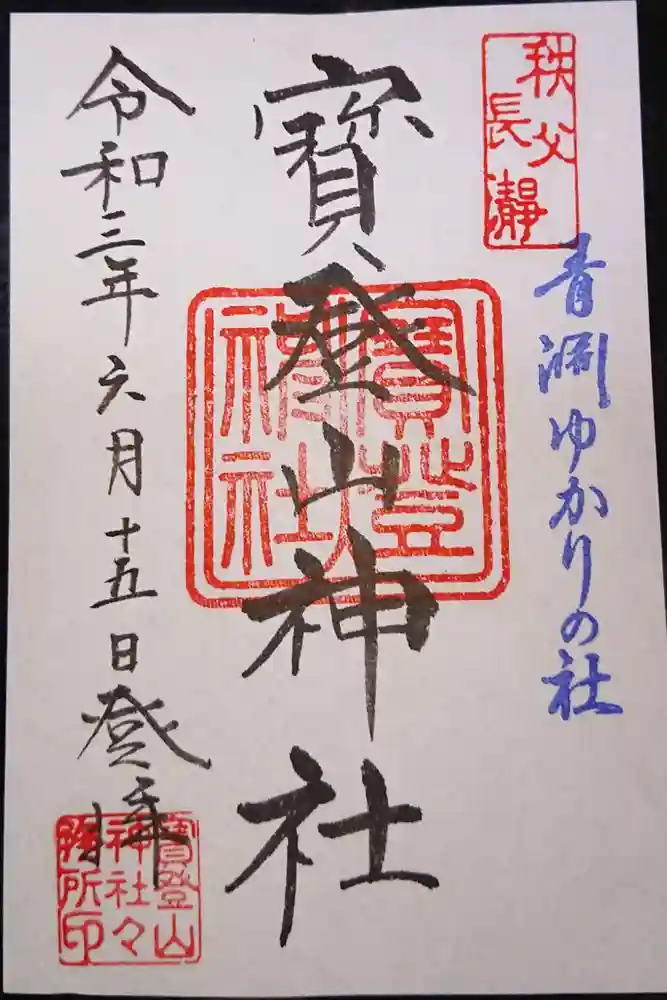 秩父
長瀞
青淵ゆかりの社
寳登山神社
寳登山
神社
令和三年六月十五日登拝
寳登山
神社々
務所印